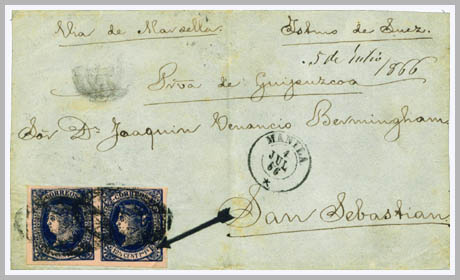 Via de Marsella. Istmo de Suez.
5 de Julio 1866
Prva de Guipuzcoa
Sor Dn Joaquin Venancio Bermingham
MANILA
JUL
66
San Sebastian
CORREOS CORREOS